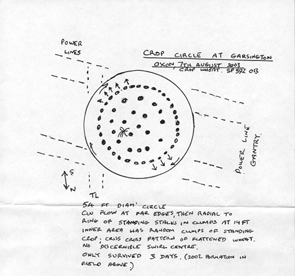 POWER
LINES
CROP CIRCLE AT GARSINGTON
OXON 7TH AUGUST 2003
CROP WHEAT. SP 592 013
POWER LINE
GANTRY
S
N
TL
54 FT DIAM' CIRCLE
CW FLOW AT FAR EDGES, THEN RADIAL TO
RING OF STANDING STALKS IN CLUMPS AT 14FT
INNER AREA WAS RANDOM CLUMPS OF STANDING
CROP, CRISS CROSS PATTERN OF FLATTENED WHEAT.
NO DISCERNIBLE SWIRL CENTRE.
ONLY SURVIVED 3 DAYS. (2002 FORMATION IN
FIELD ABOVE)